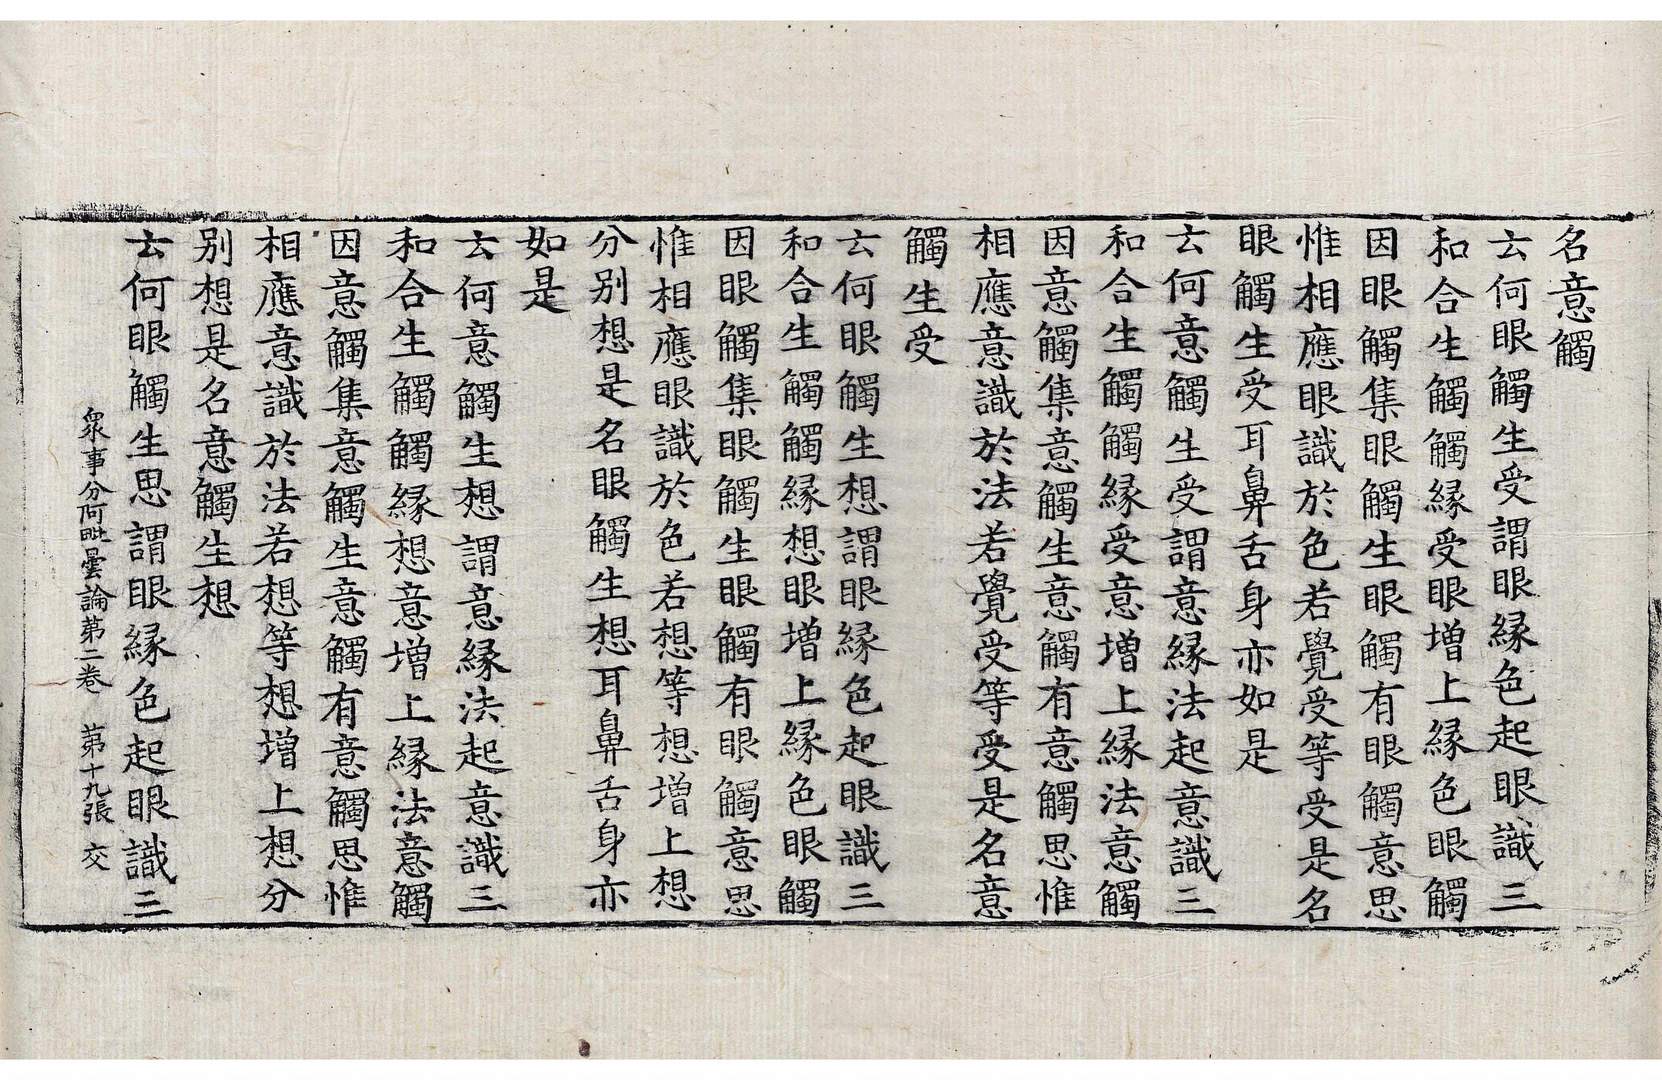 名意觸
云何眼觸生受謂眼緣色起眼識三
和合生觸觸緣受眼增上緣色眼觸
因眼觸集眼觸生眼觸有眼觸意思
惟相應眼識於色若覺受等受是名
眼觸生受耳鼻舌身亦如是
云何意觸生受謂意緣法起意識三
和合生觸觸緣受意增上緣法意觸
因意觸集意觸生意觸有意觸思惟
相應意識於法若覺受等受是名意
觸生受
云何眼觸生想謂眼緣色起眼識三
和合生觸觸緣想眼增上緣色眼觸
因眼觸集眼觸生眼觸有眼觸意思
惟相應眼識於色若想等想增上想
分別想是名眼觸生想耳鼻舌身亦
如是
云何意觸生想謂意緣法起意識三
和合生觸觸緣想意增上緣法意觸
因意觸集意觸生意觸有意觸思惟
相應意識於法若想等想增上想分
別想是名意觸生想
云何眼觸生思謂眼緣色起眼識三
衆事分阿毗曇論第二卷 第十九張 交